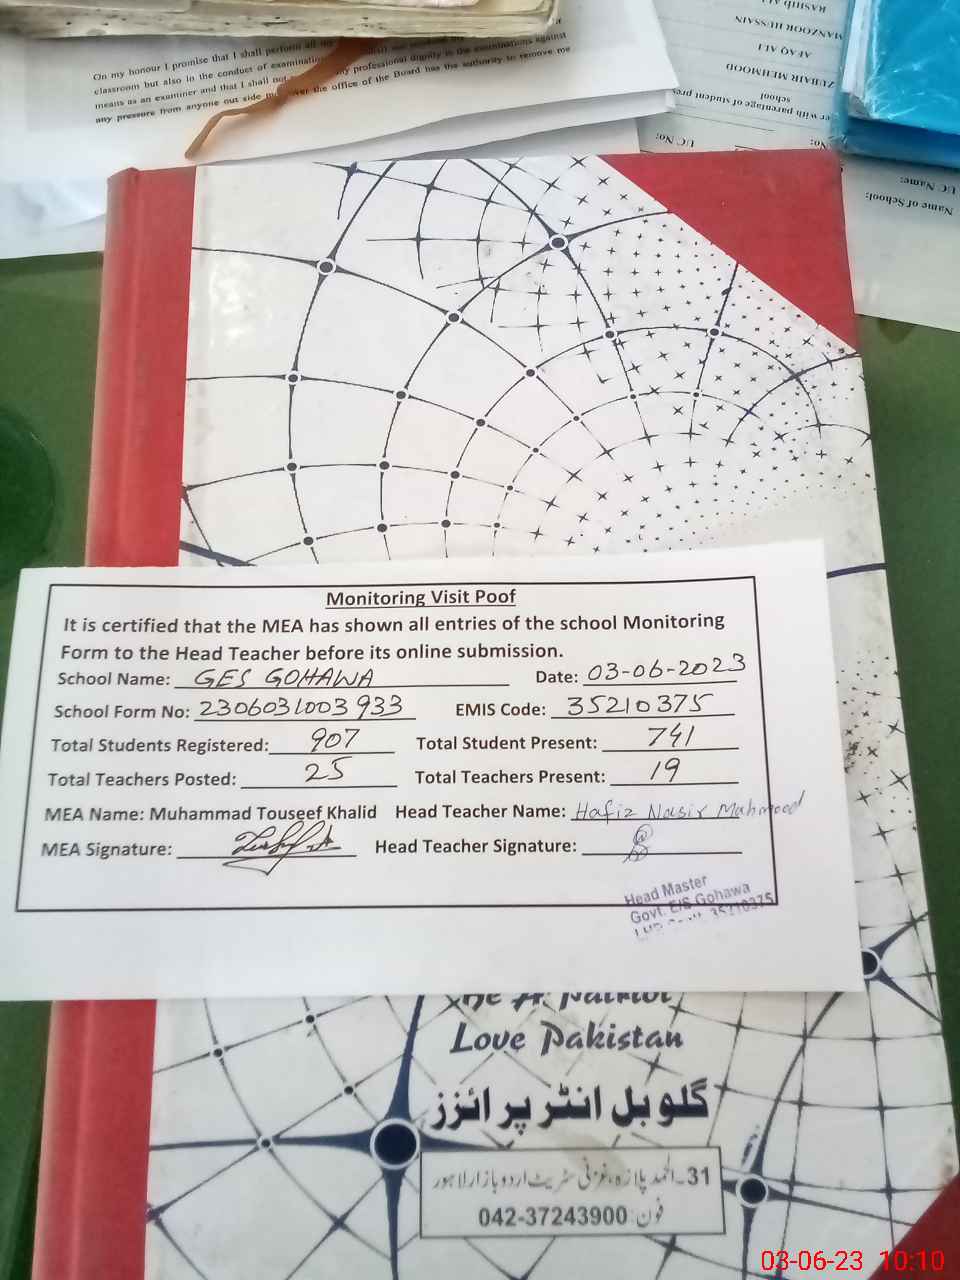 On my honour I promise that I shall perform all my
classroom but also in the conduct of examination
means as an examiner and that I shall not professional dignity in the examinations against
any pressure from anyone out side over the office of the Board has the authority to remove me
RASHID ALI
MANZOOR HUSSAIN
AFAQ ALI
ZUBAIR MEHMOOD
school
er with parentage of student pres
UC No:
UC Name:
Name of School:
Monitoring Visit Poof
It is certified that the MEA has shown all entries of the school Monitoring
Form to the Head Teacher before its online submission.
School Name: GES GOHAWA Date: 03-06-2023
School Form No: 2306031003933 EMIS Code: 35210375
Total Students Registered: 907 Total Student Present: 741
Total Teachers Posted: 25 Total Teachers Present: 19
MEA Name: Muhammad Touseef Khalid Head Teacher Name: Hafiz Nasir Mahmood
MEA Signature: Head Teacher Signature:
Head Master
Govt. E/S Gohawa
35210375
Be A Patriot
Love Pakistan
گلوبل انٹرپرائزز
31۔الحمد پلازہ، غزنی سٹریٹ اردو بازار لاہور
فون: 042-37243900
03-06-23 10:10